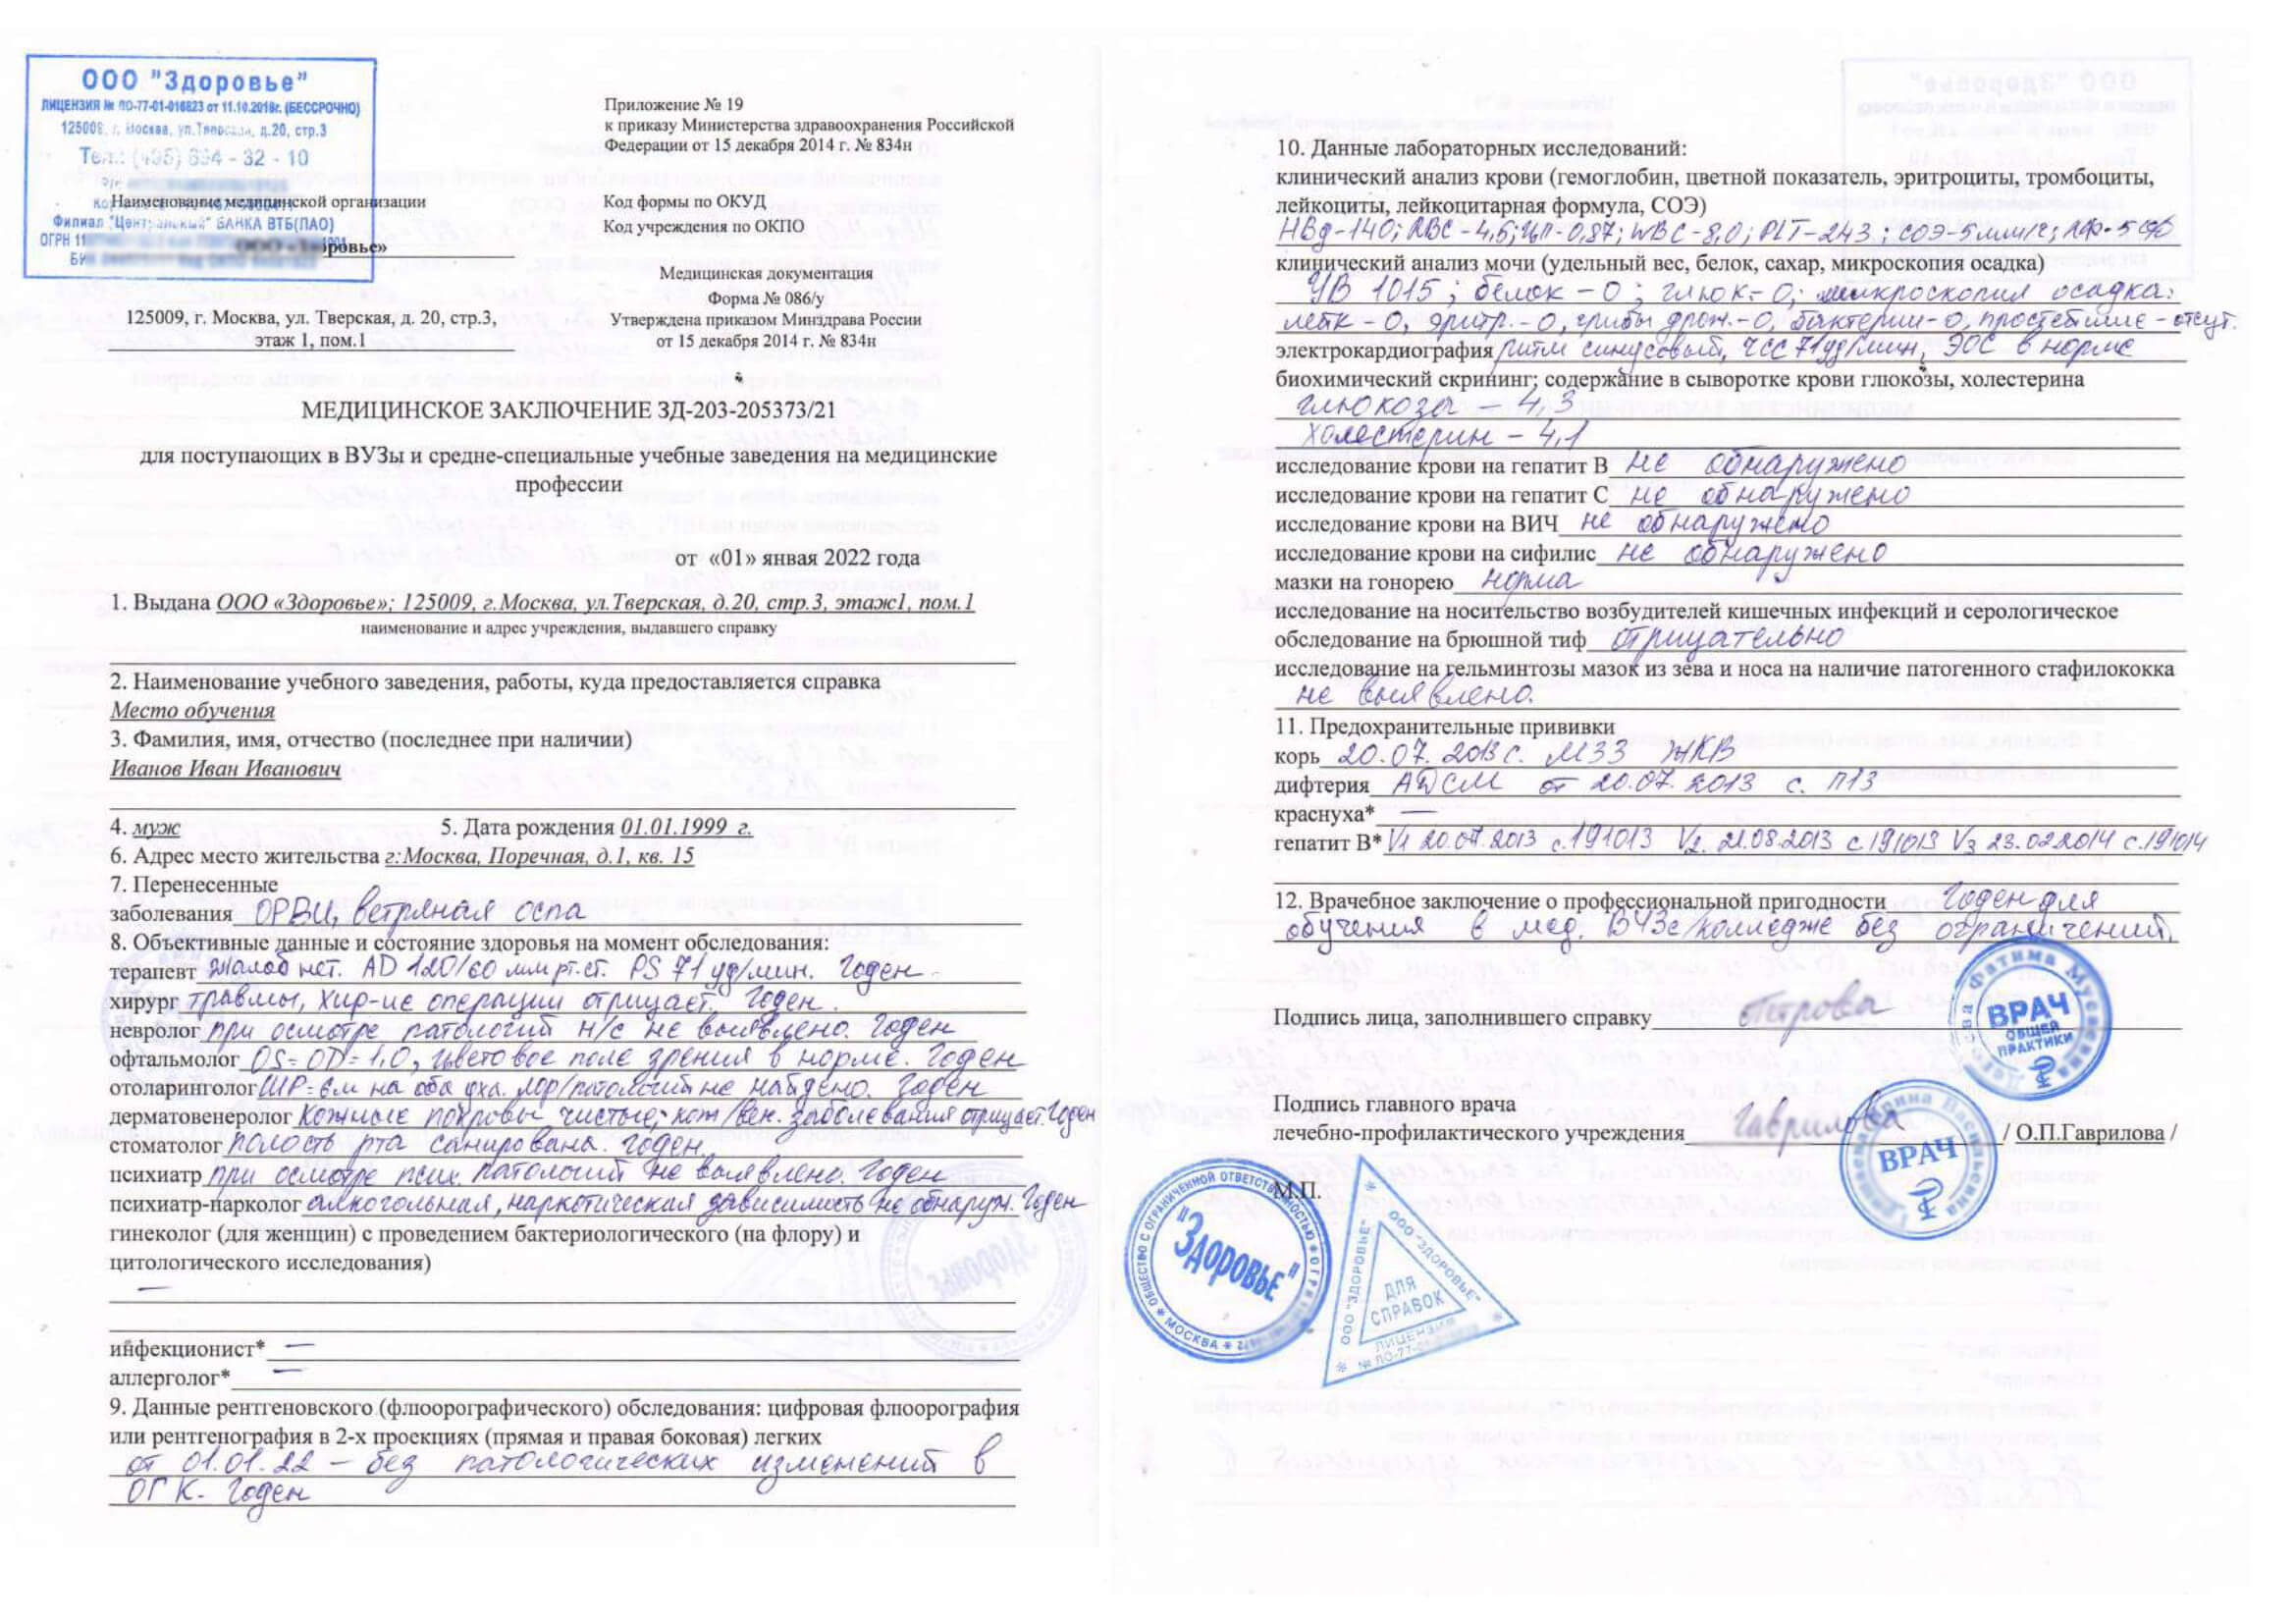 ООО "Здоровье"
ЛИЦЕНЗИЯ № ЛО-77-01-016823 от 11.10.2018г. (БЕССРОЧНО)
125009, г. Москва, ул.Тверская, д.20, стр.3
Тел.: (495) 894 - 32 - 10
Филиал "Центральный" БАНКА ВТБ(ПАО)
ОГРН 11
Наименование медицинской организации
ООО «Здоровье»
125009, г. Москва, ул. Тверская, д. 20, стр.3,
этаж 1, пом.1
Приложение № 19
к приказу Министерства здравоохранения Российской
Федерации от 15 декабря 2014 г. № 834н
Код формы по ОКУД
Код учреждения по ОКПО
Медицинская документация
Форма № 086/у
Утверждена приказом Минздрава России
от 15 декабря 2014 г. № 834н
МЕДИЦИНСКОЕ ЗАКЛЮЧЕНИЕ ЗД-203-205373/21
для поступающих в ВУЗы и средне-специальные учебные заведения на медицинские
профессии
от «01» января 2022 года
1. Выдана ООО «Здоровье»; 125009, г.Москва, ул.Тверская, д.20, стр.3, этаж1, пом.1
наименование и адрес учреждения, выдавшего справку
2. Наименование учебного заведения, работы, куда предоставляется справка
Место обучения
3. Фамилия, имя, отчество (последнее при наличии)
Иванов Иван Иванович
4. муж 5. Дата рождения 01.01.1999 г.
6. Адрес место жительства г.Москва, Поречная, д.1, кв. 15
7. Перенесенные
заболевания ОРВИ, ветряная оспа
8. Объективные данные и состояние здоровья на момент обследования:
терапевт Жалоб нет. AD 120/60 мм рт.ст. PS 71 уд/мин. Годен
хирург травмы, хир-ие операции отрицает. Годен.
невролог при осмотре патологий н/с не выявлено. Годен
офтальмолог OS=OD=1,0, цветовое поле зрения в норме. Годен
отоларинголог ШР=6м на оба уха. лор/патологий не найдено. Годен
дерматовенеролог Кожные покровы чистые, кож/вен. заболевания отрицает. Годен
стоматолог полость рта санирована. годен.
психиатр при осмотре псих. патологий не выявлено. Годен
психиатр-нарколог алкогольная, наркотическая зависимость не обнаруж. Годен
гинеколог (для женщин) с проведением бактериологического (на флору) и
цитологического исследования)
—
инфекционист* —
аллерголог* —
9. Данные рентгеновского (флюорографического) обследования: цифровая флюорография
или рентгенография в 2-х проекциях (прямая и правая боковая) легких
от 01.01.22 – без патологических изменений в
ОГК. Годен
10. Данные лабораторных исследований:
клинический анализ крови (гемоглобин, цветной показатель, эритроциты, тромбоциты,
лейкоциты, лейкоцитарная формула, СОЭ)
HBg-140; RBC-4,6; цп-0,87; WBC-8,0; PLT-243; СОЭ-5мм/г;
клинический анализ мочи (удельный вес, белок, сахар, микроскопия осадка)
УВ 1015; белок – 0; глюк.- 0; микроскопия осадка:
лейк – 0, эритр. – 0, грибы дрож.-0, бактерии-0, простейшие - отсут.
электрокардиография ритм синусовый, ЧСС 71уд/мин, ЭОС в норме
биохимический скрининг; содержание в сыворотке крови глюкозы, холестерина
глюкоза – 4,3
холестерин – 4,1
исследование крови на гепатит В не обнаружено
исследование крови на гепатит С не обнаружено
исследование крови на ВИЧ не обнаружено
исследование крови на сифилис не обнаружено
мазки на гонорею норма
исследование на носительство возбудителей кишечных инфекций и серологическое
обследование на брюшной тиф отрицательно
исследование на гельминтозы мазок из зева и носа на наличие патогенного стафилококка
не выявлено.
11. Предохранительные прививки
корь 20.07.2013 с. М33 ЖКВ
дифтерия АДСМ от 20.07.2013 с. П13
краснуха* —
гепатит В* V1 20.07.2013 с.191013 V2 21.08.2013 с.191013 V3 23.02.2014 с.191014
12. Врачебное заключение о профессиональной пригодности Годен для
обучения в мед. ВУЗе/колледже без ограничений.
Подпись лица, заполнившего справку Петрова
Фатима Мусаевна
ВРАЧ
ОБЩЕЙ
ПРАКТИКИ
Подпись главного врача
лечебно-профилактического учреждения Гаврилова / О.П.Гаврилова /
Васильевна
ВРАЧ
М.П.
ОБЩЕСТВО С ОГРАНИЧЕННОЙ ОТВЕТСТВЕННОСТЬЮ
"ЗДОРОВЬЕ"
МОСКВА
ООО "ЗДОРОВЬЕ"
ООО "ЗДОРОВЬЕ"
ДЛЯ
СПРАВОК
ЛИЦЕНЗИЯ
№ ЛО-77-01